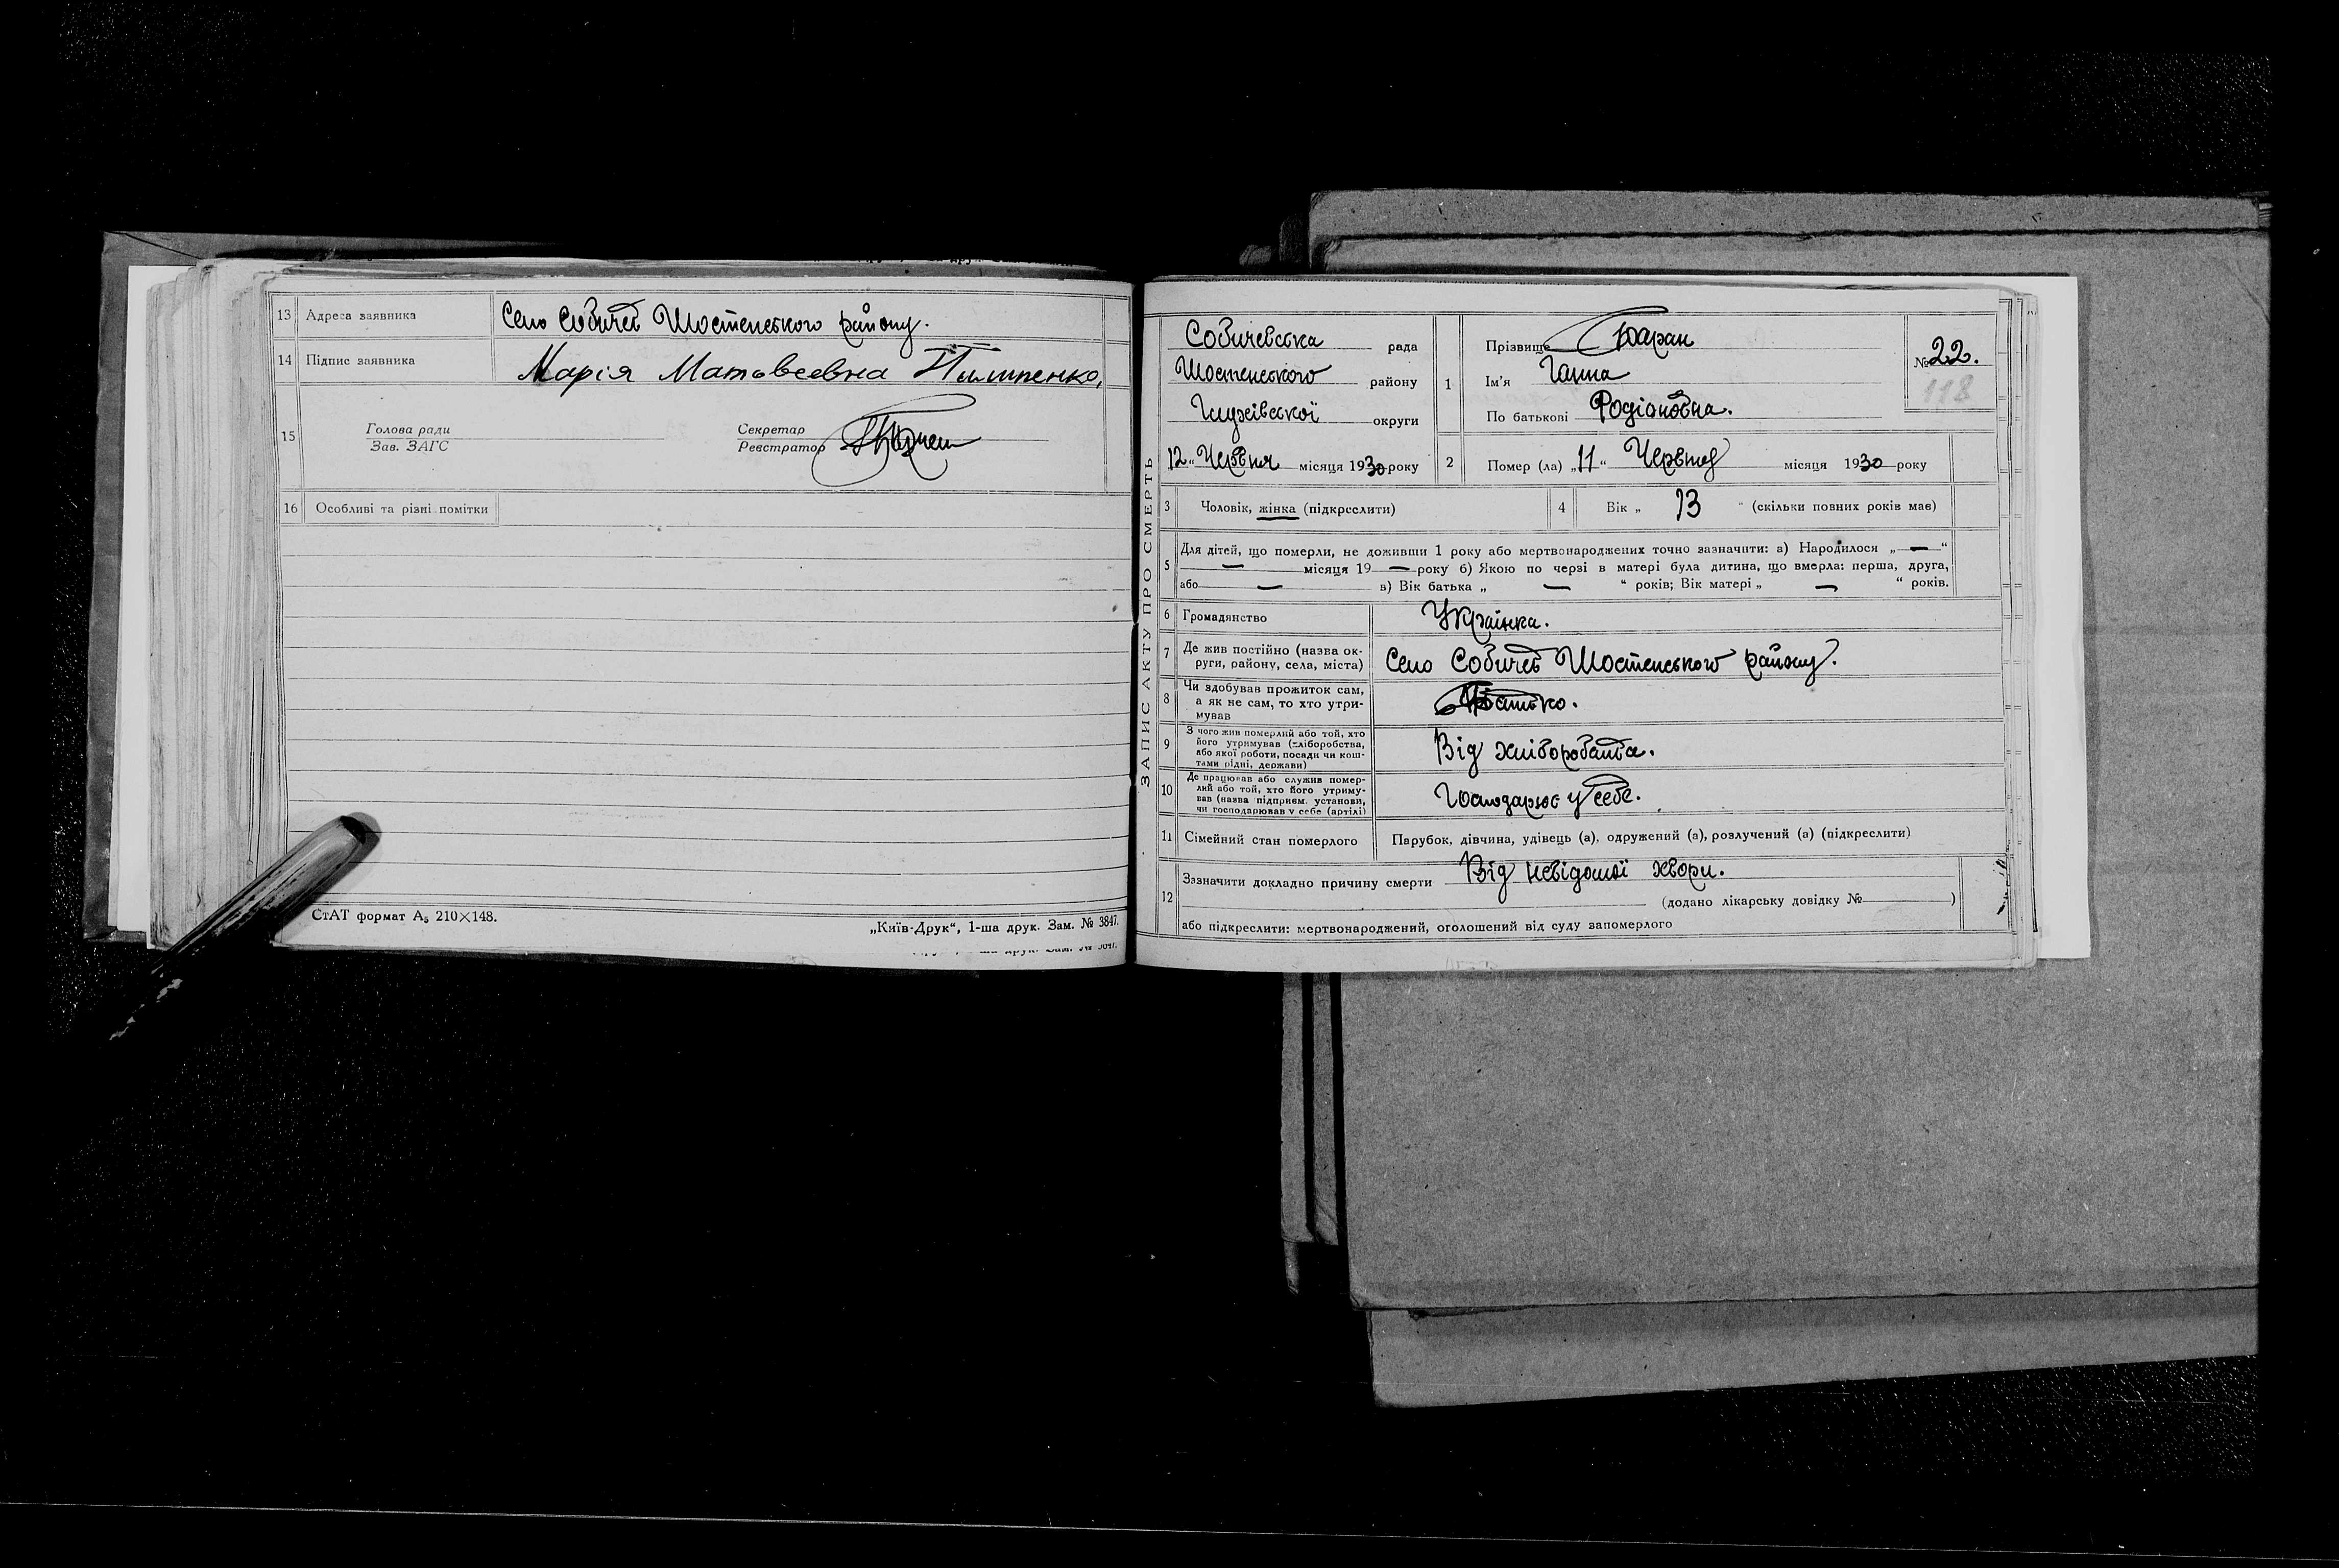 13 Адреса заявника Село Собичев Шостенського району.
14 Підпис заявника Марія Матвеевна Пилипенко,
15 Голова ради Секретар
Зав. ЗАГС Реєстратор
16 Особливі та різні помітки
СтАТ формат А5 210×148.
„Київ-Друк“, 1-ша друк. Зам. № 3847.
ЗАПИС АКТУ ПРО СМЕРТЬ
Собичевська рада
Шостенського району
Глухівської округи
12 „ Червня місяця 1930 року
1 Прізвище Баран
Ім'я Ганна
По батькові Родіоновна.
№ 22.
118
2 Помер (ла) „11“ Червня місяця 1930 року
3 Чоловік, жінка (підкреслити)
4 Вік „ 13 “ (скільки повних років мав)
5 Для дітей, що померли, не доживши 1 року або мертвонароджених точно зазначити: а) Народилося „ — “
— місяця 19 — року б) Якою по черзі в матері була дитина, що вмерла: перша, друга,
або — в) Вік батька „ — “ років; Вік матері „ — “ років.
6 Громадянство Українка.
7 Де жив постійно (назва ок-
руги, району, села, міста) Село Собичев Шостенського району.
8 Чи здобував прожиток сам,
а як не сам, то хто утри-
мував Батько.
9 З чого жив померлий або той, хто
його утримував (хліборобства,
або якої роботи, посади чи кош-
тами рідні, держави) Від хліборобства.
10 Де працював або служив помер-
лий або той, хто його утриму-
вав (назва підприєм. установи,
чи господарював у себе (артілі) Господарює у себе.
11 Сімейний стан померлого Парубок, дівчина, удівець (а), одружений (а), розлучений (а) (підкреслити)
12 Зазначити докладно причину смерти Від невідомої хвори.
(додано лікарську довідку № )
або підкреслити: мертвонароджений, оголошений від суду запомерлого